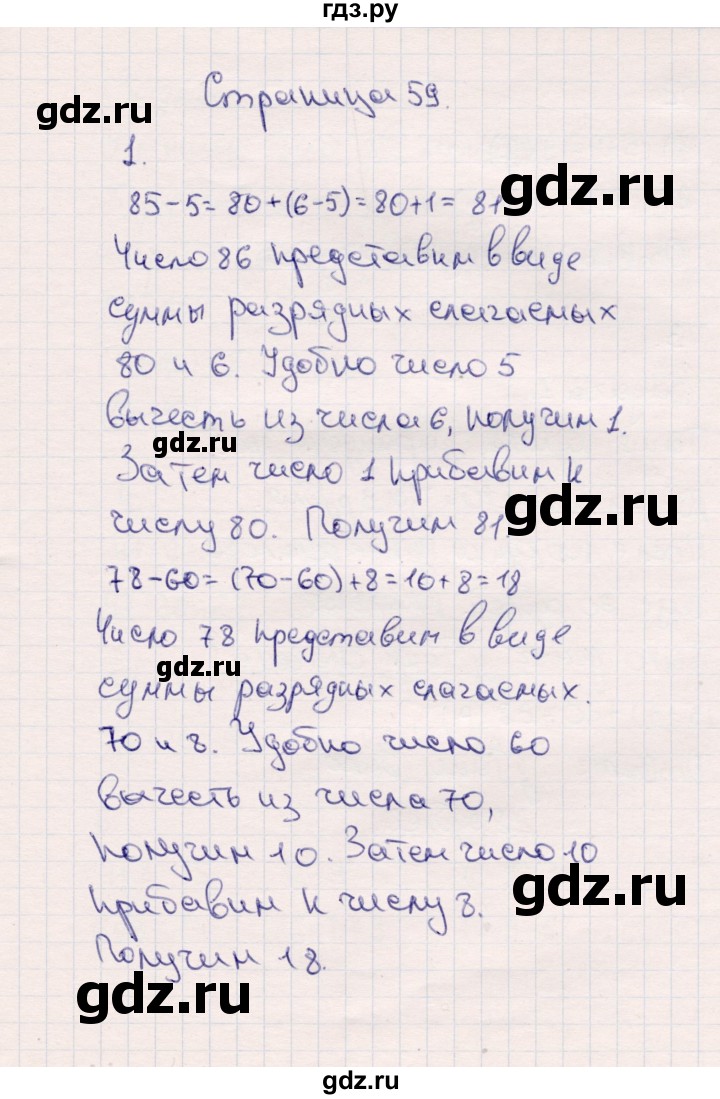 гдз.ру
Страница 59.
gdz.ru
1.
gdz.ru
85-5= 80+(6-5)=80+1= 81
Число 86 представим в виде
суммы разрядных слагаемых
80 и 6. Удобно число 5
вычесть из числа 6, получим 1.
gdz.ru
Затем число 1 прибавим к
gdz.ru
числу 80. Получим 81.
78-60= (70-60)+8=10+8=18
Число 78 представим в виде
gdz.ru
суммы разрядных слагаемых.
70 и 8. Удобно число 60
вычесть из числа 70,
получим 10. Затем число 10
gdz.ru
прибавим к числу 8.
Получим 18.
gdz.ru
gdz.ru